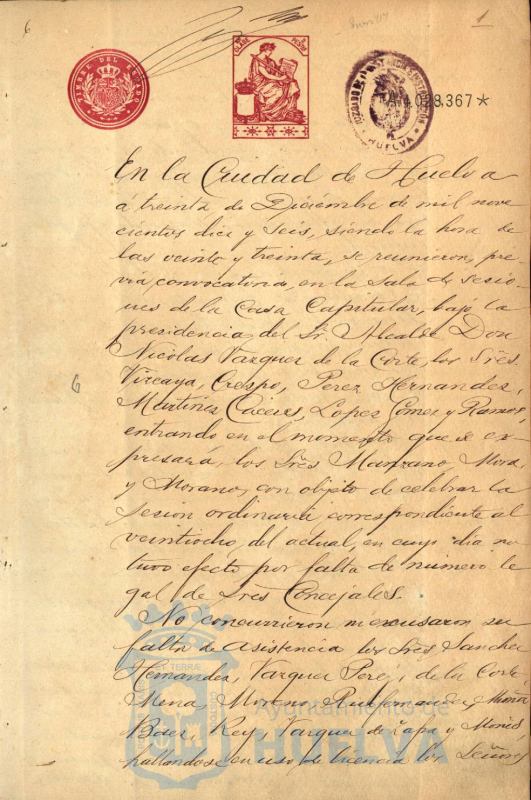 6
1
TIMBRE DEL ESTADO
CLASE
PESETA
JUZGADO DE 1ª INSTANCIA E INSTRUCCIÓN
HUELVA
A.4.028.367*
En la Ciudad de Huelva
á treinta de Diciembre de mil nove
cientos diez y seis, siendo la hora de
las veinte y treinta, se reunieron, pre
via convocatoria, en la Sala de sesio
nes de la Casa Capitular, bajo la
presidencia del Sr. Alcalde Don
Nicolas Vazquez de la Corte, los Sres
Vizcaya, Crespo, Perez Hernandez,
Martinez Cáceres, Lopez Gomez y Ramos,
6
entrando en el momento que se ex
presará, los Sres Manzano, Mora
y Morano, con objeto de celebrar la
sesion ordinaria, correspondiente al
veintiocho del actual, en cuyo dia no
tuvo efecto por falta de número le
gal de Sres Concejales.
No concurrieron ni excusaron su
falta de asistencia los Sres Sanchez
Hernandez, Vazquez Perez, de la Corte
Mena, Moreno, Ruifernandez, Muñoz
Baez, Rey, Vazquez de Zafra y
hallandose en uso de licencia los Señores
Ayuntamiento de
HUELVA